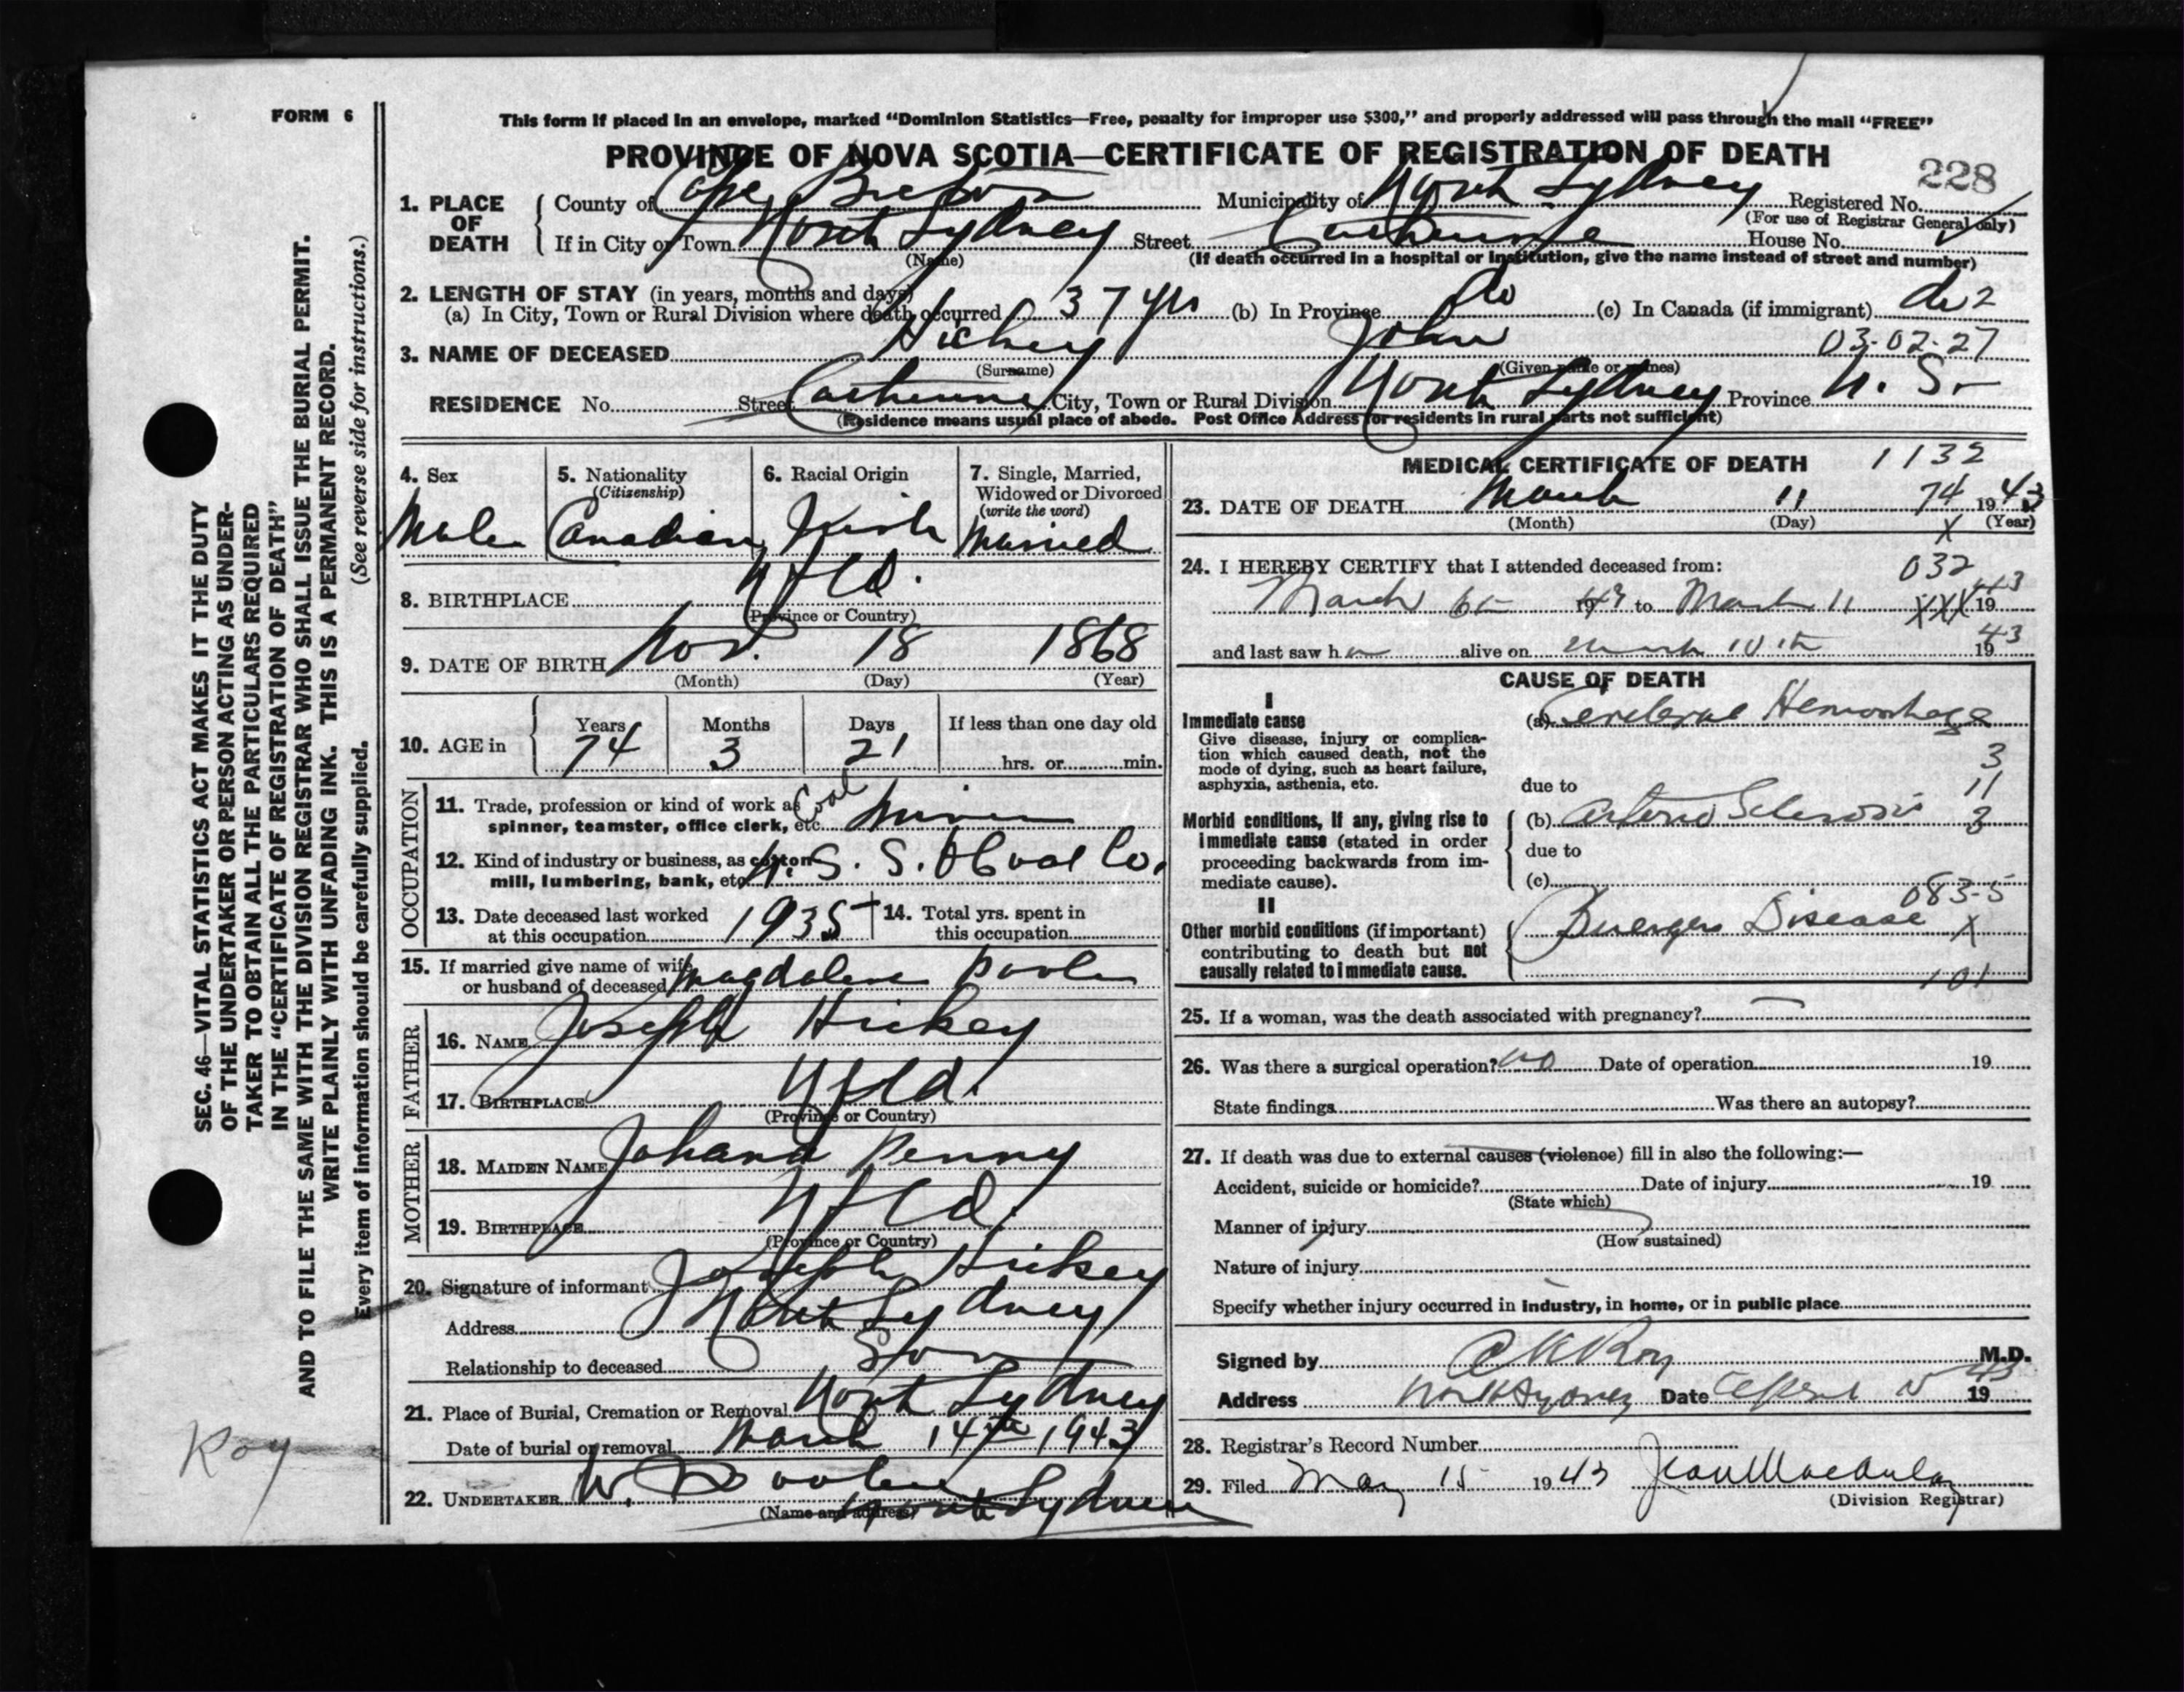 FORM 6
This form if placed in an envelope, marked "Dominion Statistics—Free, penalty for improper use $300," and properly addressed will pass through the mail "FREE"
PROVINCE OF NOVA SCOTIA—CERTIFICATE OF REGISTRATION OF DEATH
228
1. PLACE OF DEATH County of Cape Breton Municipality of North Sydney Registered No.
(For use of Registrar General only)
If in City or Town North Sydney Street Catherine House No.
(Name) (If death occurred in a hospital or institution, give the name instead of street and number)
2. LENGTH OF STAY (in years, months and days)
(a) In City, Town or Rural Division where death occurred 37 yrs (b) In Province do (c) In Canada (if immigrant) do 2
3. NAME OF DECEASED Hickey John 03-02-27
(Surname) (Given name or names)
RESIDENCE No. Street Catherine City, Town or Rural Division North Sydney Province N. S.
(Residence means usual place of abode. Post Office Address for residents in rural parts not sufficient)
4. Sex 5. Nationality 6. Racial Origin 7. Single, Married,
(Citizenship) Widowed or Divorced
(write the word)
Male Canadian Irish Married
8. BIRTHPLACE Nfld.
(Province or Country)
9. DATE OF BIRTH Nov. 18 1868
(Month) (Day) (Year)
10. AGE in Years Months Days If less than one day old
74 3 21 hrs. or min.
OCCUPATION
11. Trade, profession or kind of work as Coal Miner
spinner, teamster, office clerk, etc.
12. Kind of industry or business, as cotton N. S. S. & Coal Co.
mill, lumbering, bank, etc.
13. Date deceased last worked at this occupation 1935
14. Total yrs. spent in this occupation
15. If married give name of wife or husband of deceased Magdalene
FATHER
16. NAME Joseph Hickey
17. BIRTHPLACE Nfld.
(Province or Country)
MOTHER
18. MAIDEN NAME Johana Penny
19. BIRTHPLACE Nfld.
(Province or Country)
20. Signature of informant Joseph Hickey
Address North Sydney
Relationship to deceased Son
21. Place of Burial, Cremation or Removal North Sydney
Date of burial or removal March 14th 1943
22. UNDERTAKER W. North Sydney
(Name and address)
MEDICAL CERTIFICATE OF DEATH 1132
23. DATE OF DEATH March 11 74 1943
(Month) (Day) X (Year)
24. I HEREBY CERTIFY that I attended deceased from: 032
March 6th 1943 to March 11 XXX 1943
and last saw h alive on March 10th 1943
CAUSE OF DEATH
I
Immediate cause (a) Cerebral Hemorhage
Give disease, injury or complica-
tion which caused death, not the 3
mode of dying, such as heart failure,
asphyxia, asthenia, etc. due to 11
Morbid conditions, if any, giving rise to (b) Arterio Sclerosis 3
immediate cause (stated in order
proceeding backwards from im- due to
mediate cause). (c)
II 083-5
Other morbid conditions (if important) Buergers Disease X
contributing to death but not
causally related to immediate cause. 101
25. If a woman, was the death associated with pregnancy? —
26. Was there a surgical operation? no Date of operation 19
State findings Was there an autopsy?
27. If death was due to external causes (violence) fill in also the following:—
Accident, suicide or homicide? Date of injury 19
(State which)
Manner of injury
(How sustained)
Nature of injury
Specify whether injury occurred in industry, in home, or in public place
Signed by Roy M.D.
Address North Sydney Date April 1943
28. Registrar's Record Number
29. Filed May 15 1943 Jean
(Division Registrar)
SEC. 46—VITAL STATISTICS ACT MAKES IT THE DUTY
OF THE UNDERTAKER OR PERSON ACTING AS UNDER-
TAKER TO OBTAIN ALL THE PARTICULARS REQUIRED
IN THE "CERTIFICATE OF REGISTRATION OF DEATH"
AND TO FILE THE SAME WITH THE DIVISION REGISTRAR WHO SHALL ISSUE THE BURIAL PERMIT.
WRITE PLAINLY WITH UNFADING INK. THIS IS A PERMANENT RECORD.
Every item of information should be carefully supplied. (See reverse side for instructions.)
Roy